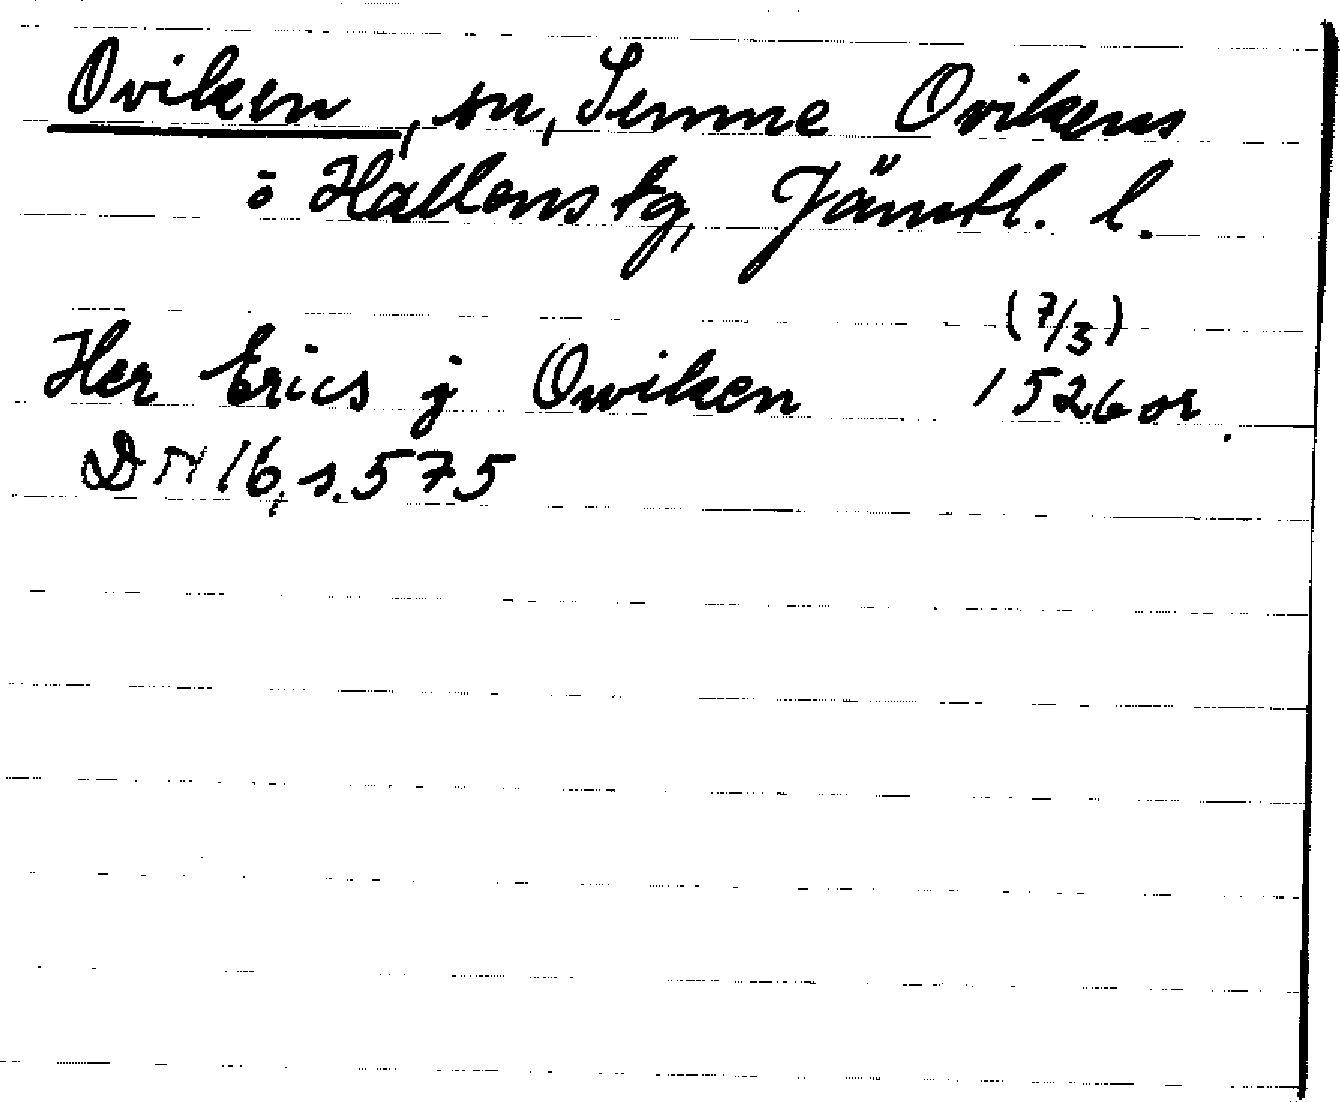 Oviken, sn, Sunne Ovikens
o Hallens tg, Jämtl. l.
(7/3)
Her Erics j Owiken 1526 or.
DN 16, s. 575